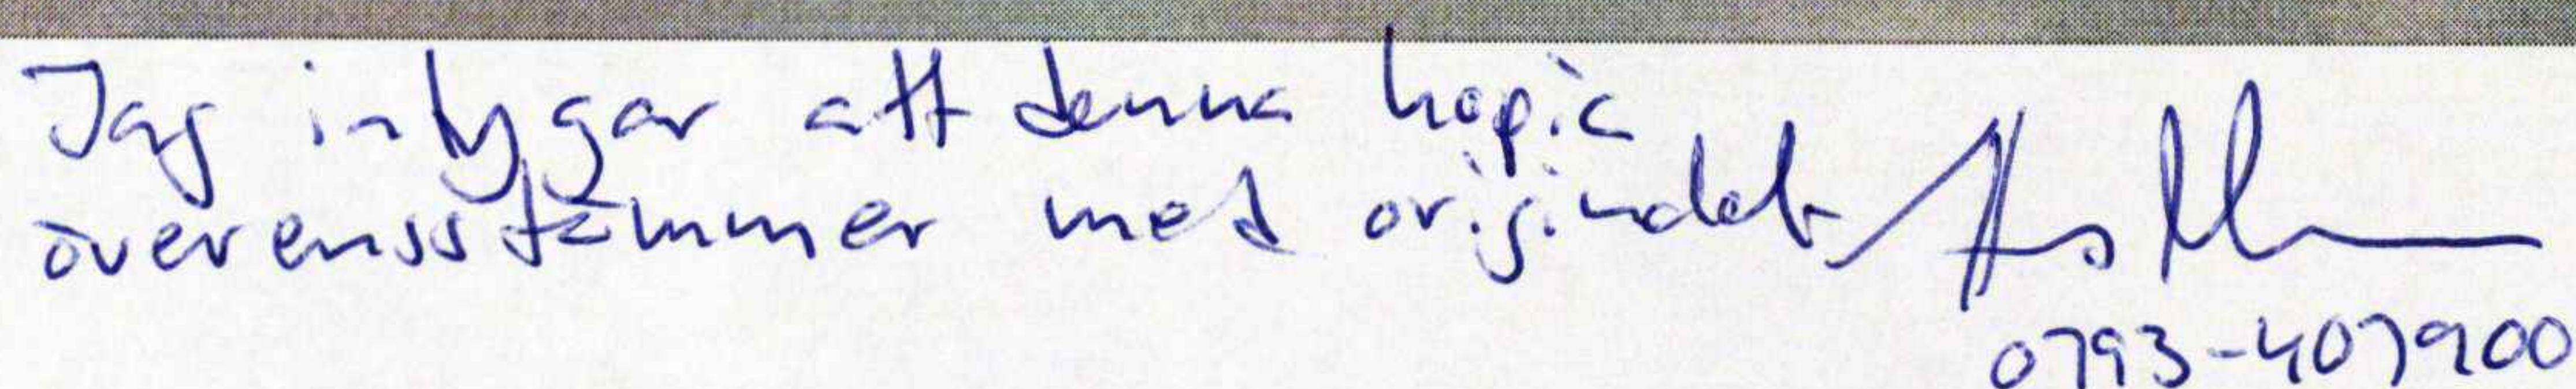 Jag intygar att denna kopia
överensstämmer med originalet
0793-407900